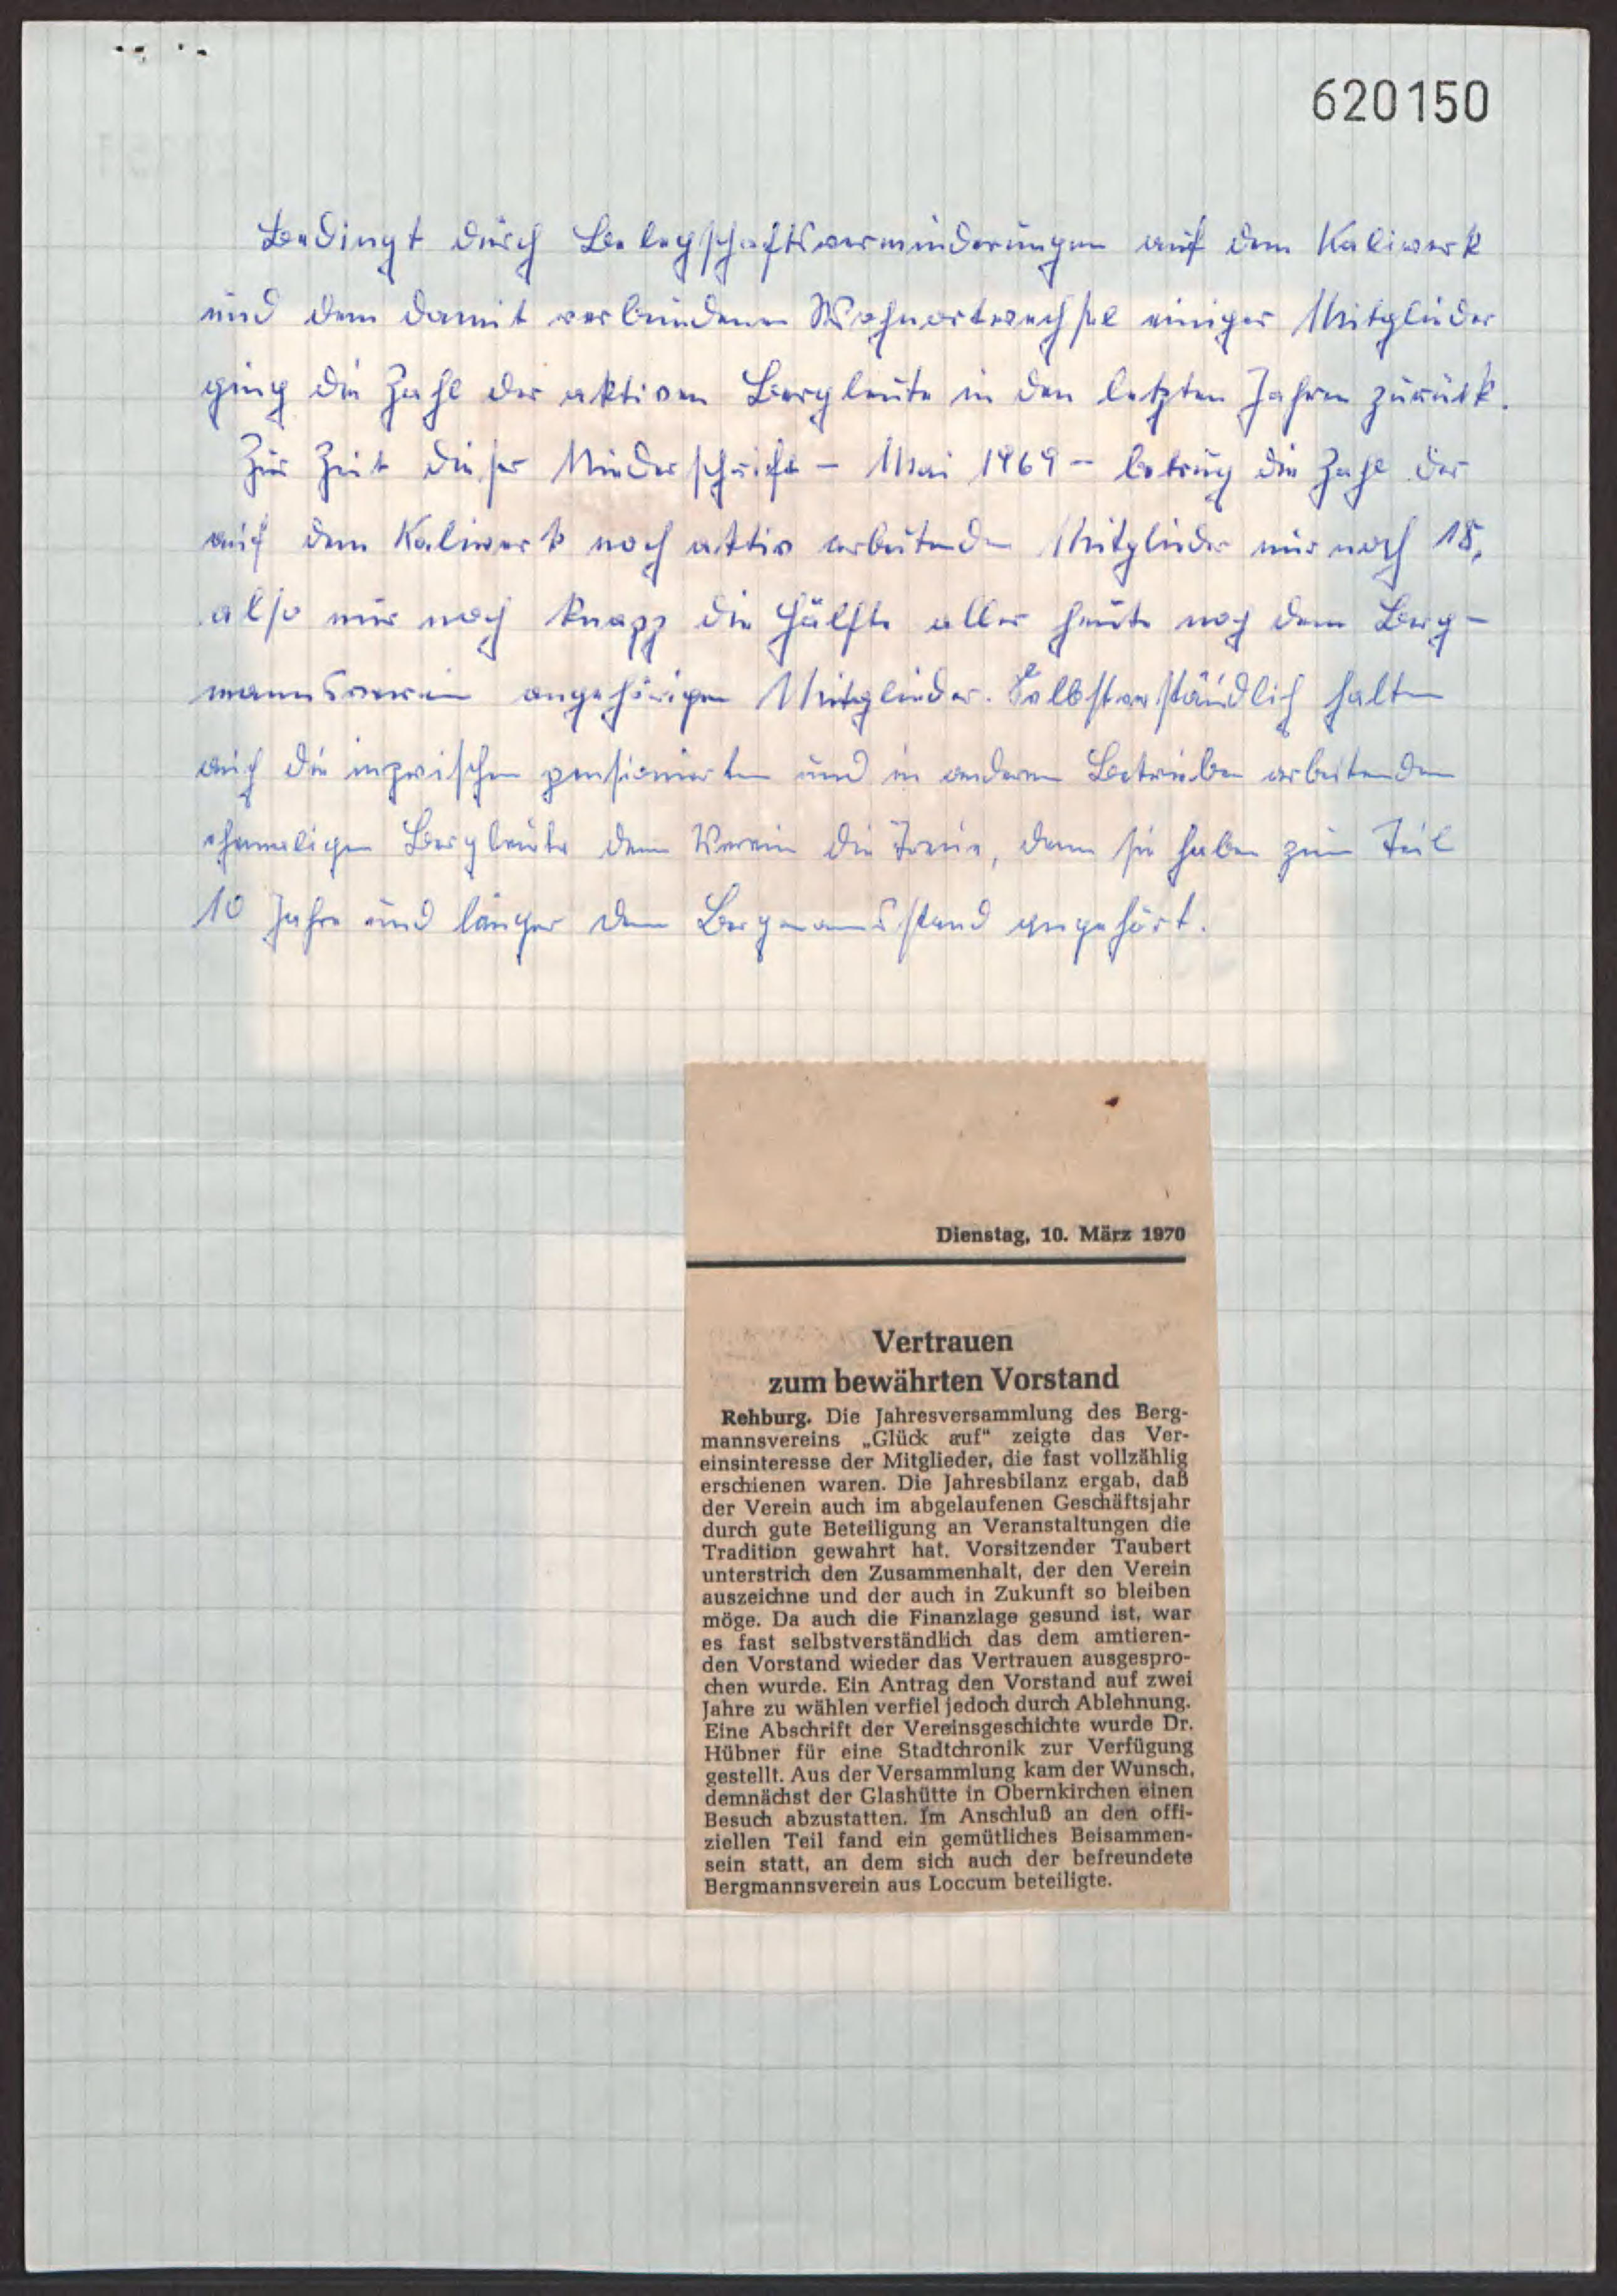 620150
Bedingt durch Belegschaftsverminderungen auf dem Kaliwerk
und dem damit verbundenen Wohnortwechsel einiger Mitglieder
ging die Zahl der aktiven Bergleute in den letzten Jahren zurück.
Zur Zeit dieser Niederschrift - Mai 1969 - betrug die Zahl der
auf dem Kaliwerk noch aktiv arbeitenden Mitglieder nur noch 18,
also nur noch knapp die Hälfte aller heute noch dem Berg-
mannsverein angehörigen Mitglieder. Selbstverständlich halten
auch die inzwischen pensionierten und in anderen Betrieben arbeitenden
ehemaligen Bergleute dem Verein die Treue, denn sie haben zum Teil
10 Jahre und länger dem Bergmannsstand angehört.
Dienstag, 10. März 1970
Vertrauen
zum bewährten Vorstand
Rehburg. Die Jahresversammlung des Berg-
mannsvereins „Glück auf“ zeigte das Ver-
einsinteresse der Mitglieder, die fast vollzählig
erschienen waren. Die Jahresbilanz ergab, daß
der Verein auch im abgelaufenen Geschäftsjahr
durch gute Beteiligung an Veranstaltungen die
Tradition gewahrt hat. Vorsitzender Taubert
unterstrich den Zusammenhalt, der den Verein
auszeichne und der auch in Zukunft so bleiben
möge. Da auch die Finanzlage gesund ist, war
es fast selbstverständlich das dem amtieren-
den Vorstand wieder das Vertrauen ausgespro-
chen wurde. Ein Antrag den Vorstand auf zwei
Jahre zu wählen verfiel jedoch durch Ablehnung.
Eine Abschrift der Vereinsgeschichte wurde Dr.
Hübner für eine Stadtchronik zur Verfügung
gestellt. Aus der Versammlung kam der Wunsch,
demnächst der Glashütte in Obernkirchen einen
Besuch abzustatten. Im Anschluß an den offi-
ziellen Teil fand ein gemütliches Beisammen-
sein statt, an dem sich auch der befreundete
Bergmannsverein aus Loccum beteiligte.